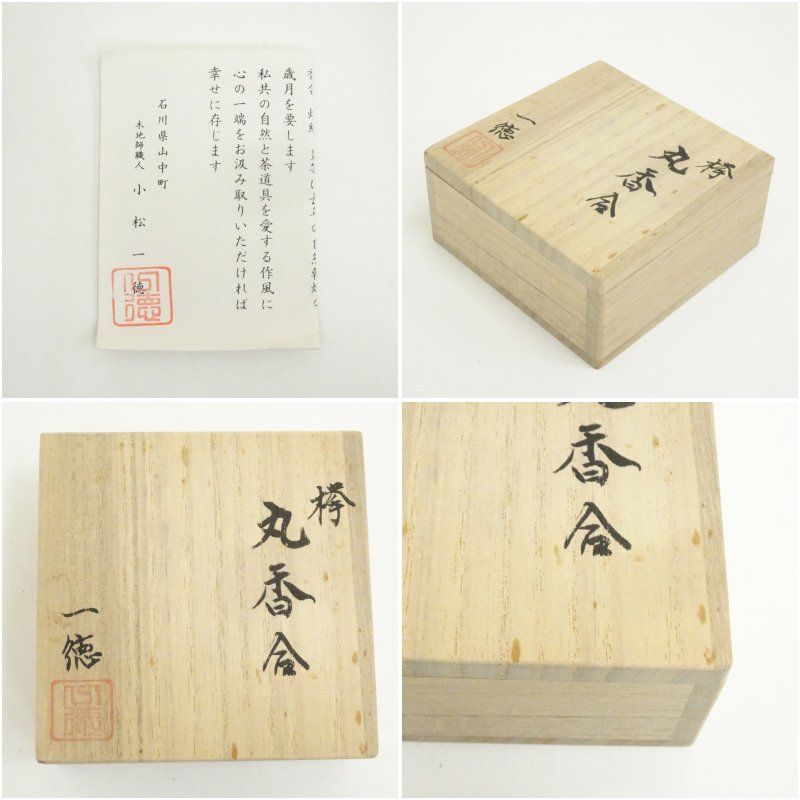 歳月を要します
私共の自然と茶道具を愛する作風に
心の一端をお汲み取りいただければ
幸せに存じます
石川県山中町
木地師職人 小松一徳
欅
丸香合
一徳
欅
丸香合
一徳
香合